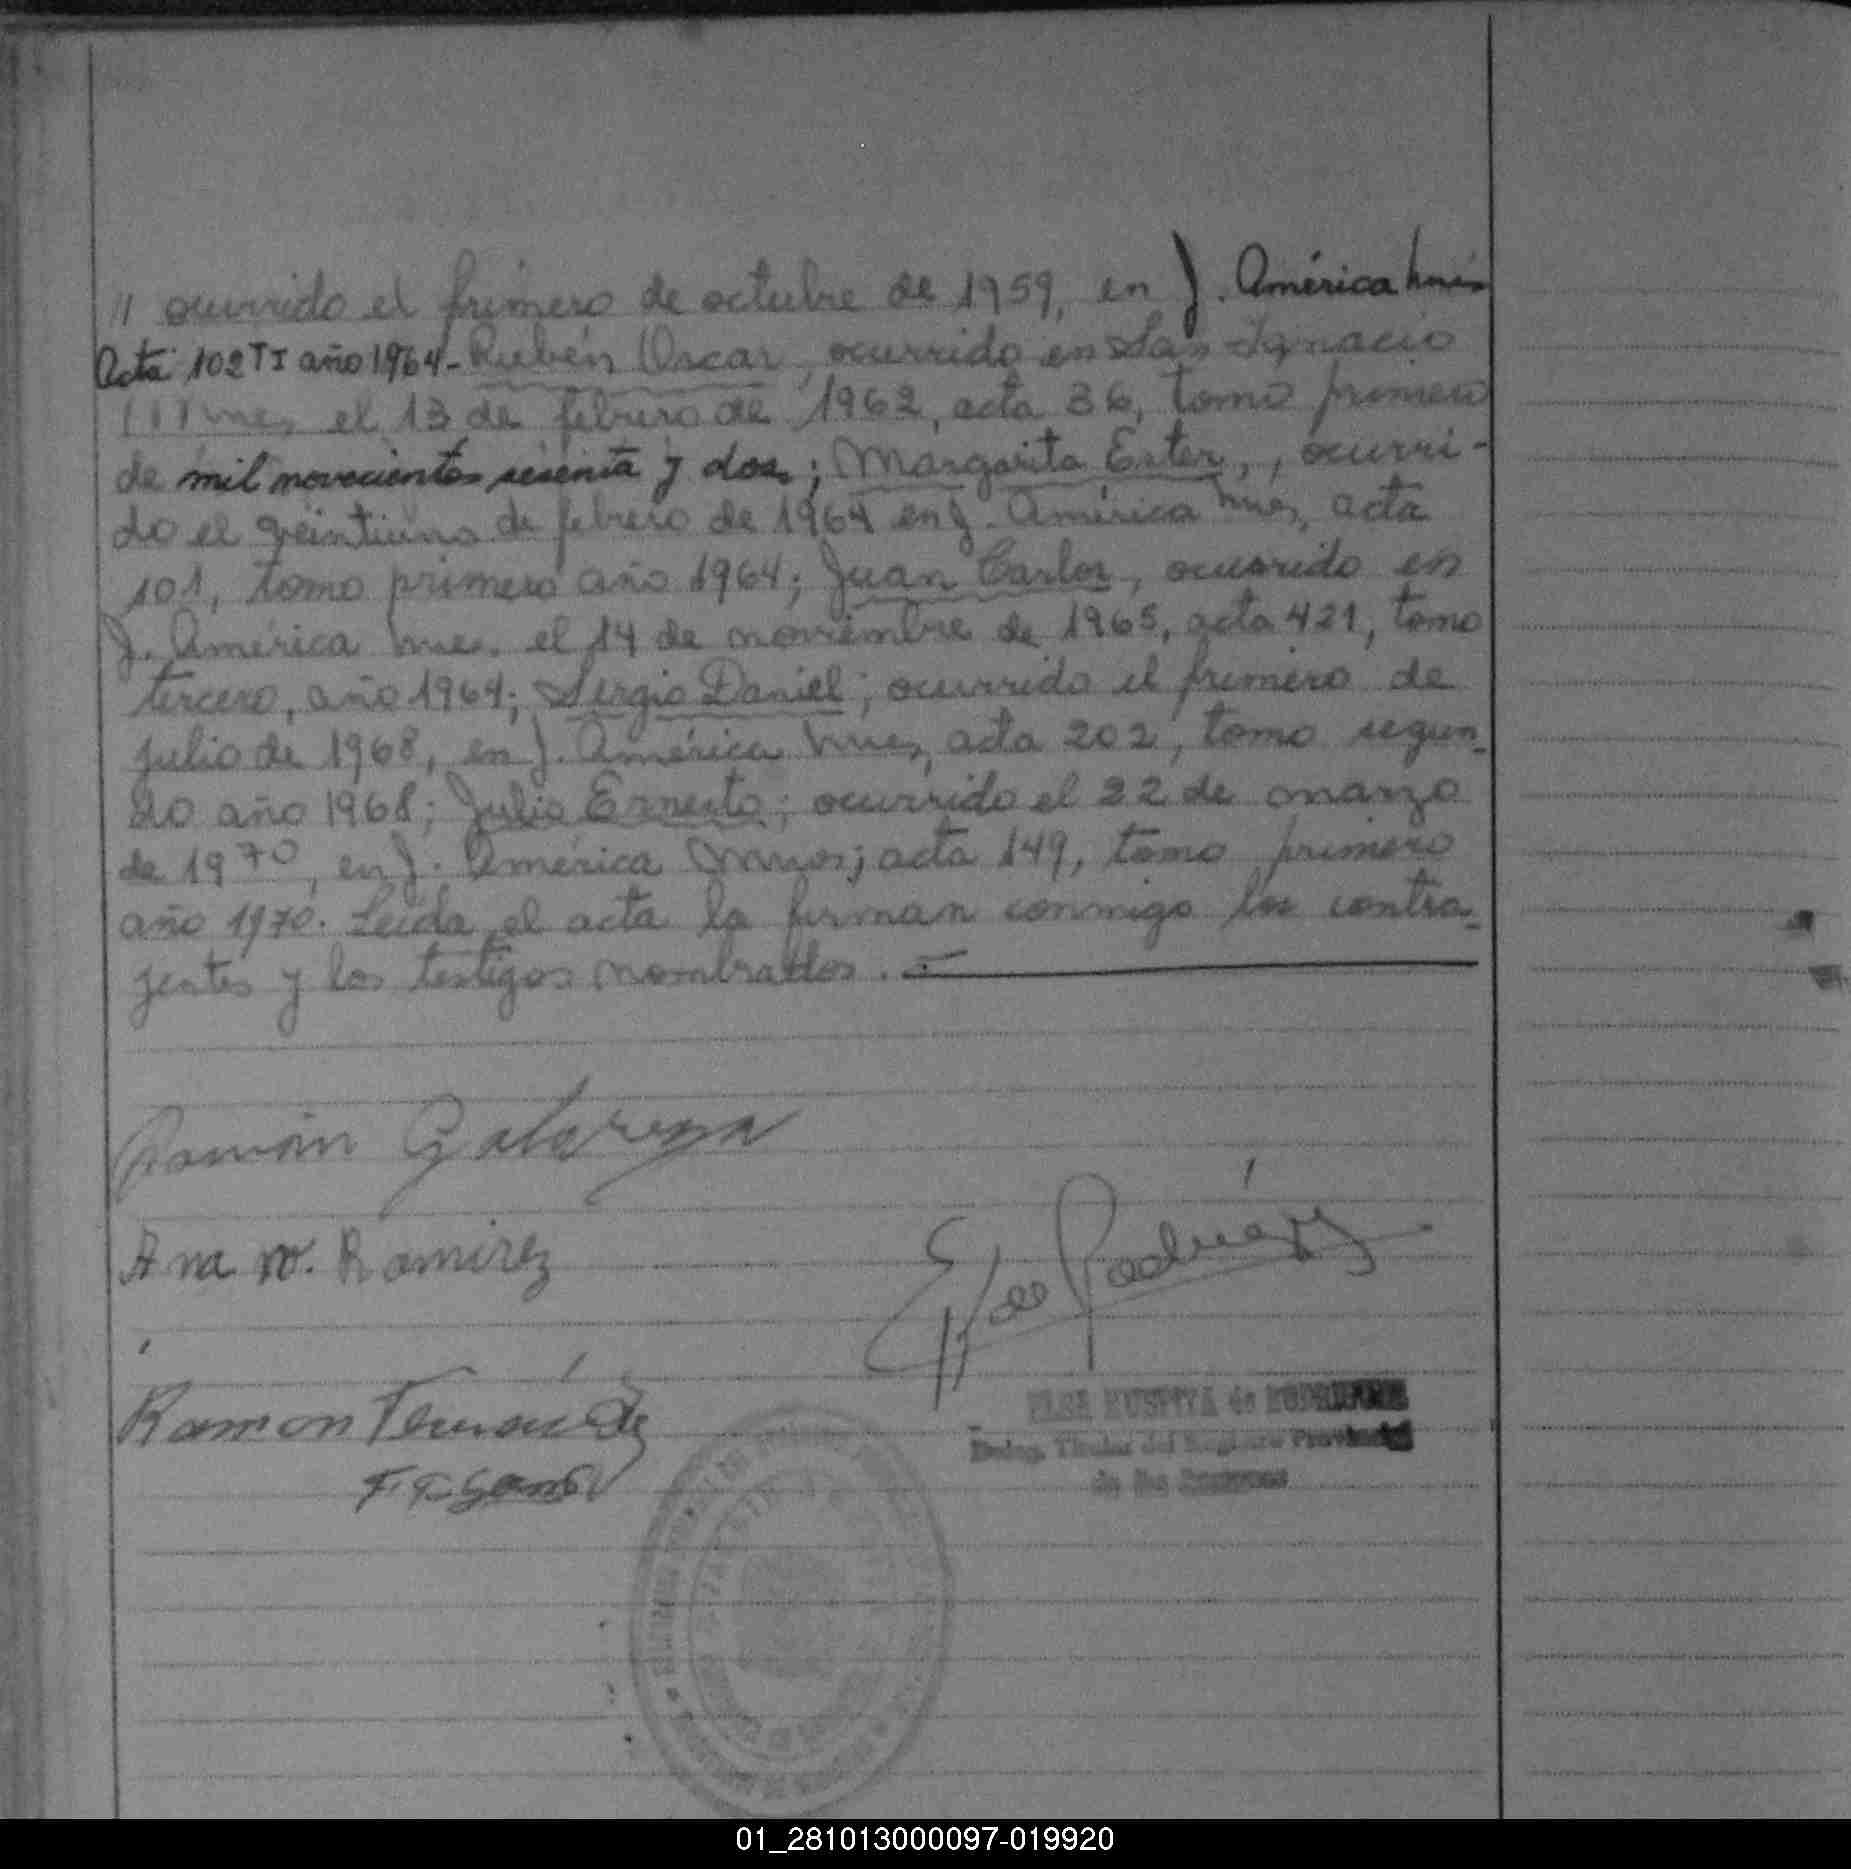 // ocurrido el primero de octubre de 1959, en J. América Mnes
Acta 102 TI año 1964- Rubén Oscar, ocurrido en San Ignacio
Mnes, el 13 de febrero de 1962, acta 36, tomo primero
de mil novecientos sesenta y dos; Margarita Ester, , ocurri-
do el veintiuno de febrero de 1964 en J. América Mnes, acta
101, tomo primero año 1964; Juan Carlos, ocurrido en
J. América Mnes. el 14 de noviembre de 1965, acta 421, tomo
tercero, año 1964; Sergio Daniel; ocurrido el primero de
julio de 1968, en J. América Mnes, acta 202, tomo segun-
do año 1968; Julio Ernesto; ocurrido el 22 de marzo
de 1970, en J. América acta 149, tomo primero
año 1970. Leída el acta la firman conmigo los contra-
yentes y los testigos nombrados. -
Ramón
Ana M. Ramirez
de Rodríguez
Ramon Fernández
de
Titular del Registro Provincial
de las Personas
01_281013000097-019920